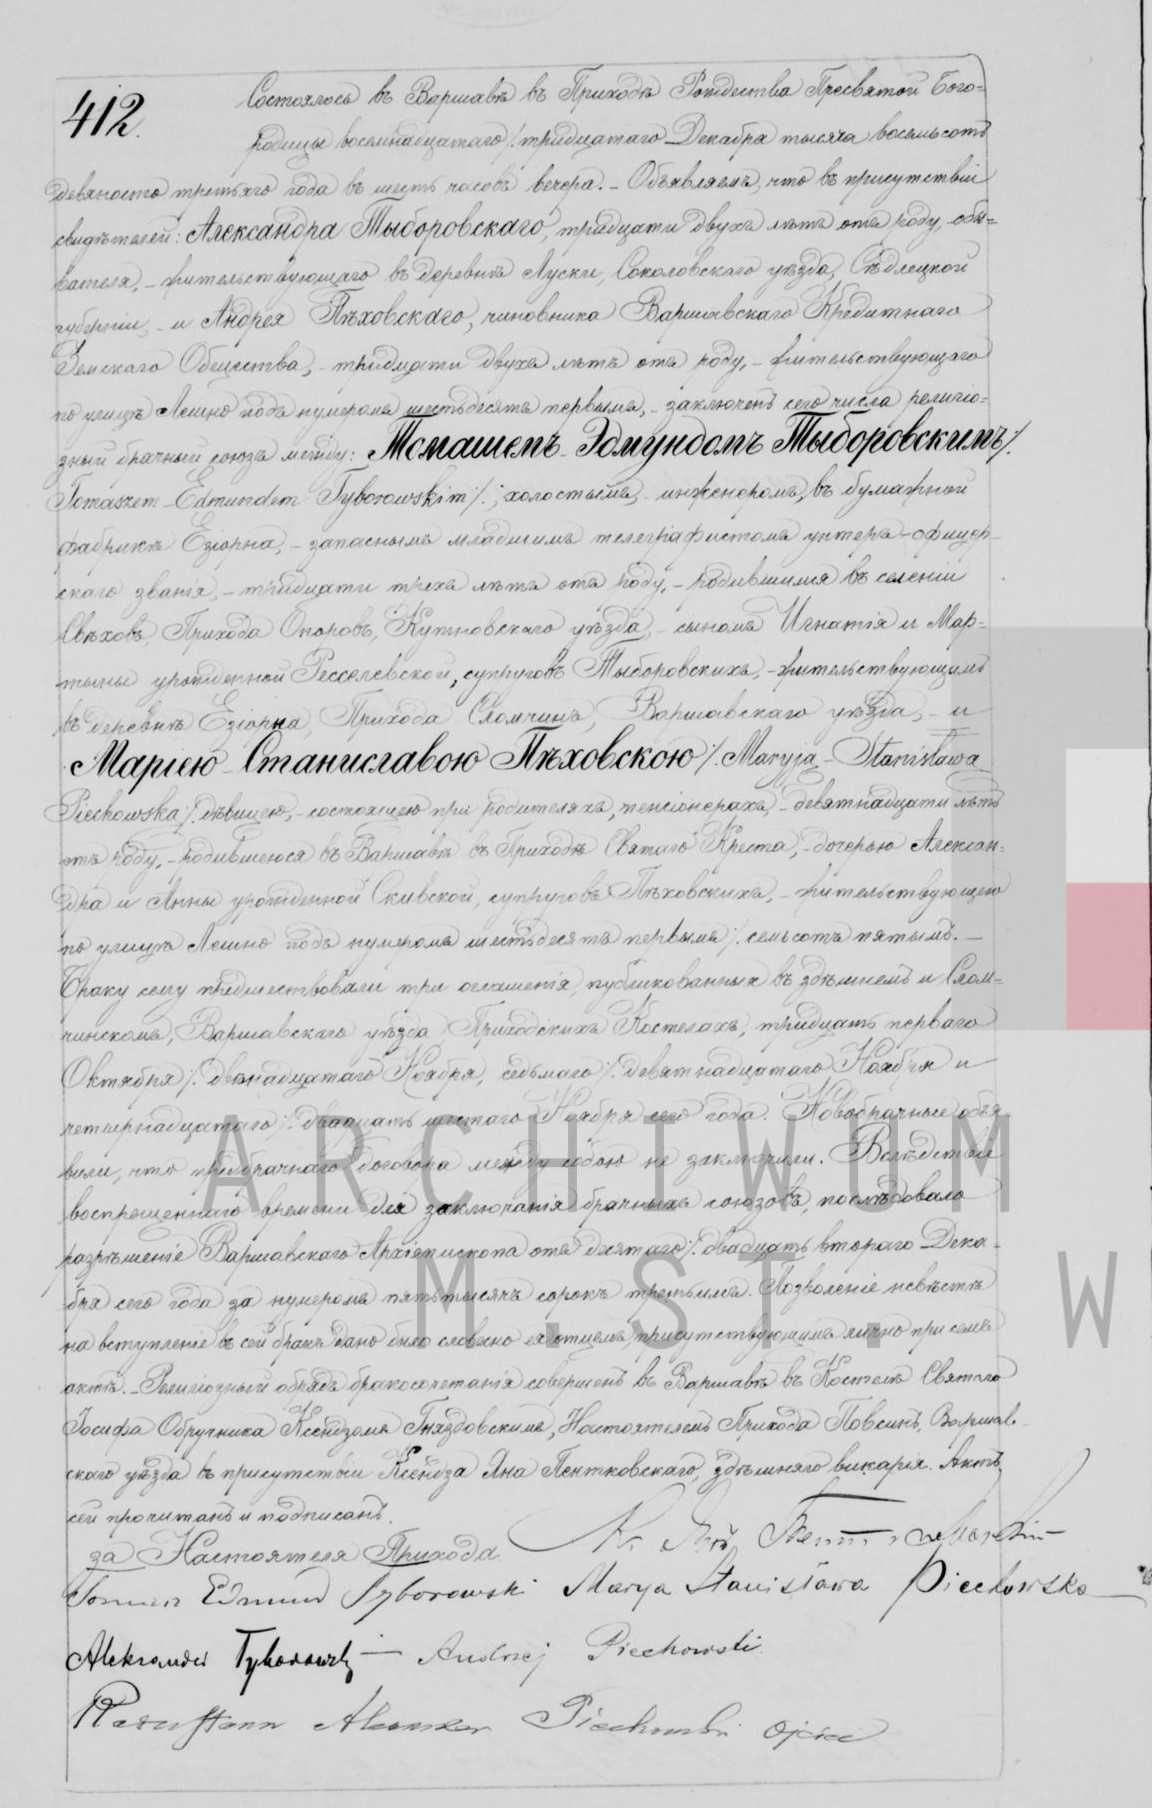 412.
Состоялось въ Варшавѣ въ Приходѣ Рождества Пресвятой Бого-
родицы восемнадцатаго /. тридцатаго Декабря тысяча восемьсотъ
девяносто третьяго года въ шесть часовъ вечера. – Объявляемъ, что въ присутствіи
свидѣтелей: Александра Тыборовскаго, тридцати двухъ лѣтъ отъ роду, обы-
вателя, – жительствующаго въ деревнѣ Луски, Соколовскаго уѣзда, Сѣдлецкой
губерніи, – и Андрея Пѣховскаго, чиновника Варшавскаго Кредитнаго
Земскаго Общества, – тридцати двухъ лѣтъ отъ роду, – жительствующаго
по улицѣ Лешно подъ нумеромъ шестьдесятъ первымъ, – заключенъ сего числа религіо-
зный брачный союзъ между: Томашемъ-Эдмундомъ Тыборовскимъ /.
Tomaszem-Edmundem Tyborowskim /., холостымъ, – инженеромъ, въ бумажной
фабрикѣ Езіорна, – запаснымъ младшимъ телеграфистомъ унтеръ-офицер-
скаго званія, – тридцати трехъ лѣтъ отъ роду, – родившимся въ селеніи
Свѣховъ, Прихода Опоровъ, Кутновскаго уѣзда, – сыномъ Игнатія и Мар-
тыны урожденной, супруговъ Тыборовскихъ, – жительствующимъ
въ деревнѣ Езіорна, Прихода Сломчинъ, Варшавскаго уѣзда, – и
Маріею-Станиславою Пѣховскою /. Maryją-Stanisława
Piechowska /. дѣвицею, – состоящею при родителяхъ, пенсіонерахъ, – девятнадцати лѣтъ
отъ роду, – родившеюся въ Варшавѣ въ Приходѣ Святаго Креста, – дочерью Алексан-
дра и Анны урожденной Скивской, супруговъ Пѣховскихъ, – жительствующею
по улицѣ Лешно подъ нумеромъ шестьдесятъ первымъ /. семьсотъ пятымъ. –
Браку сему предшествовали три оглашенія, публикованныя въ здѣшнемъ и Слом-
чинскомъ, Варшавскаго уѣзда Приходскихъ Костелахъ, тридцать перваго
Октября /. двѣнадцатаго Ноября, седьмаго /. девятнадцатаго Ноября и
четырнадцатаго /. двадцать шестаго Ноября сего года. Новобрачные объя-
вили, что предбрачнаго договора между собою не заключили. Вслѣдствіе
воспрещеннаго времени для заключанія брачныхъ союзовъ, послѣдовало
разрѣшеніе Варшавскаго Архіепископа отъ десятаго /. двадцать втораго Дека-
бря сего года за нумеромъ пять тысячъ сорокъ третьимъ. Позволеніе невѣстѣ
на вступленіе въ сей бракъ дано было словесно ея отцемъ, присутствующимъ лично при семъ
актѣ. – Религіозный обрядъ бракосочетанія совершенъ въ Варшавѣ въ Костелѣ Святаго
Іосифа Обручника Ксендзомъ Гназдовскимъ, Настоятелемъ Прихода Повсинъ, Варшав-
скаго уѣзда въ присутствіи Ксендза Яна Пентковскаго, здѣшняго викарія. Актъ
сей прочитанъ и подписанъ.
за Настоятеля Прихода.
Tomasz Edmund Tyborowski Marya Stanisława Piechowska
Aleksander Tyborowski – Andrzej Piechowski
Aleksander Piechowski ojciec
ARCHIWUM
M. ST. W